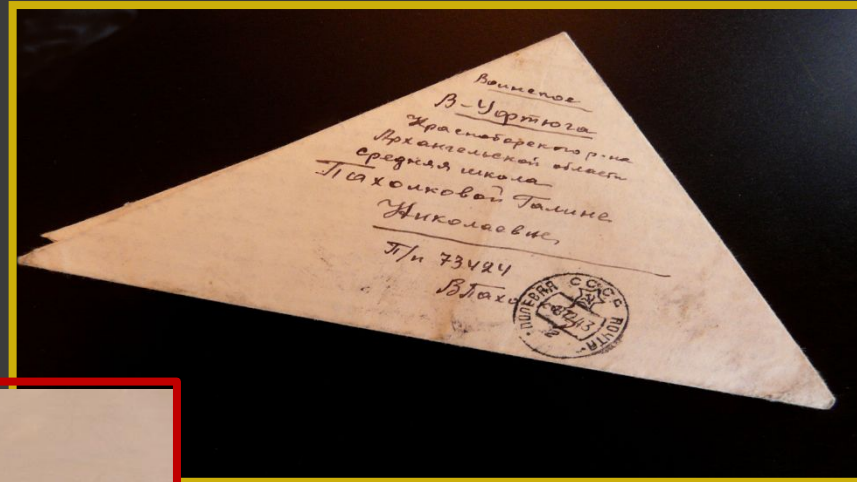 Воинское
В-Уфтюга
Красноборского р-на
Архангельской области
средняя школа
Пахолковой Галине
Николаевне
П/п 73424
В Пахо
ПОЛЕВАЯ ПОЧТА СССР